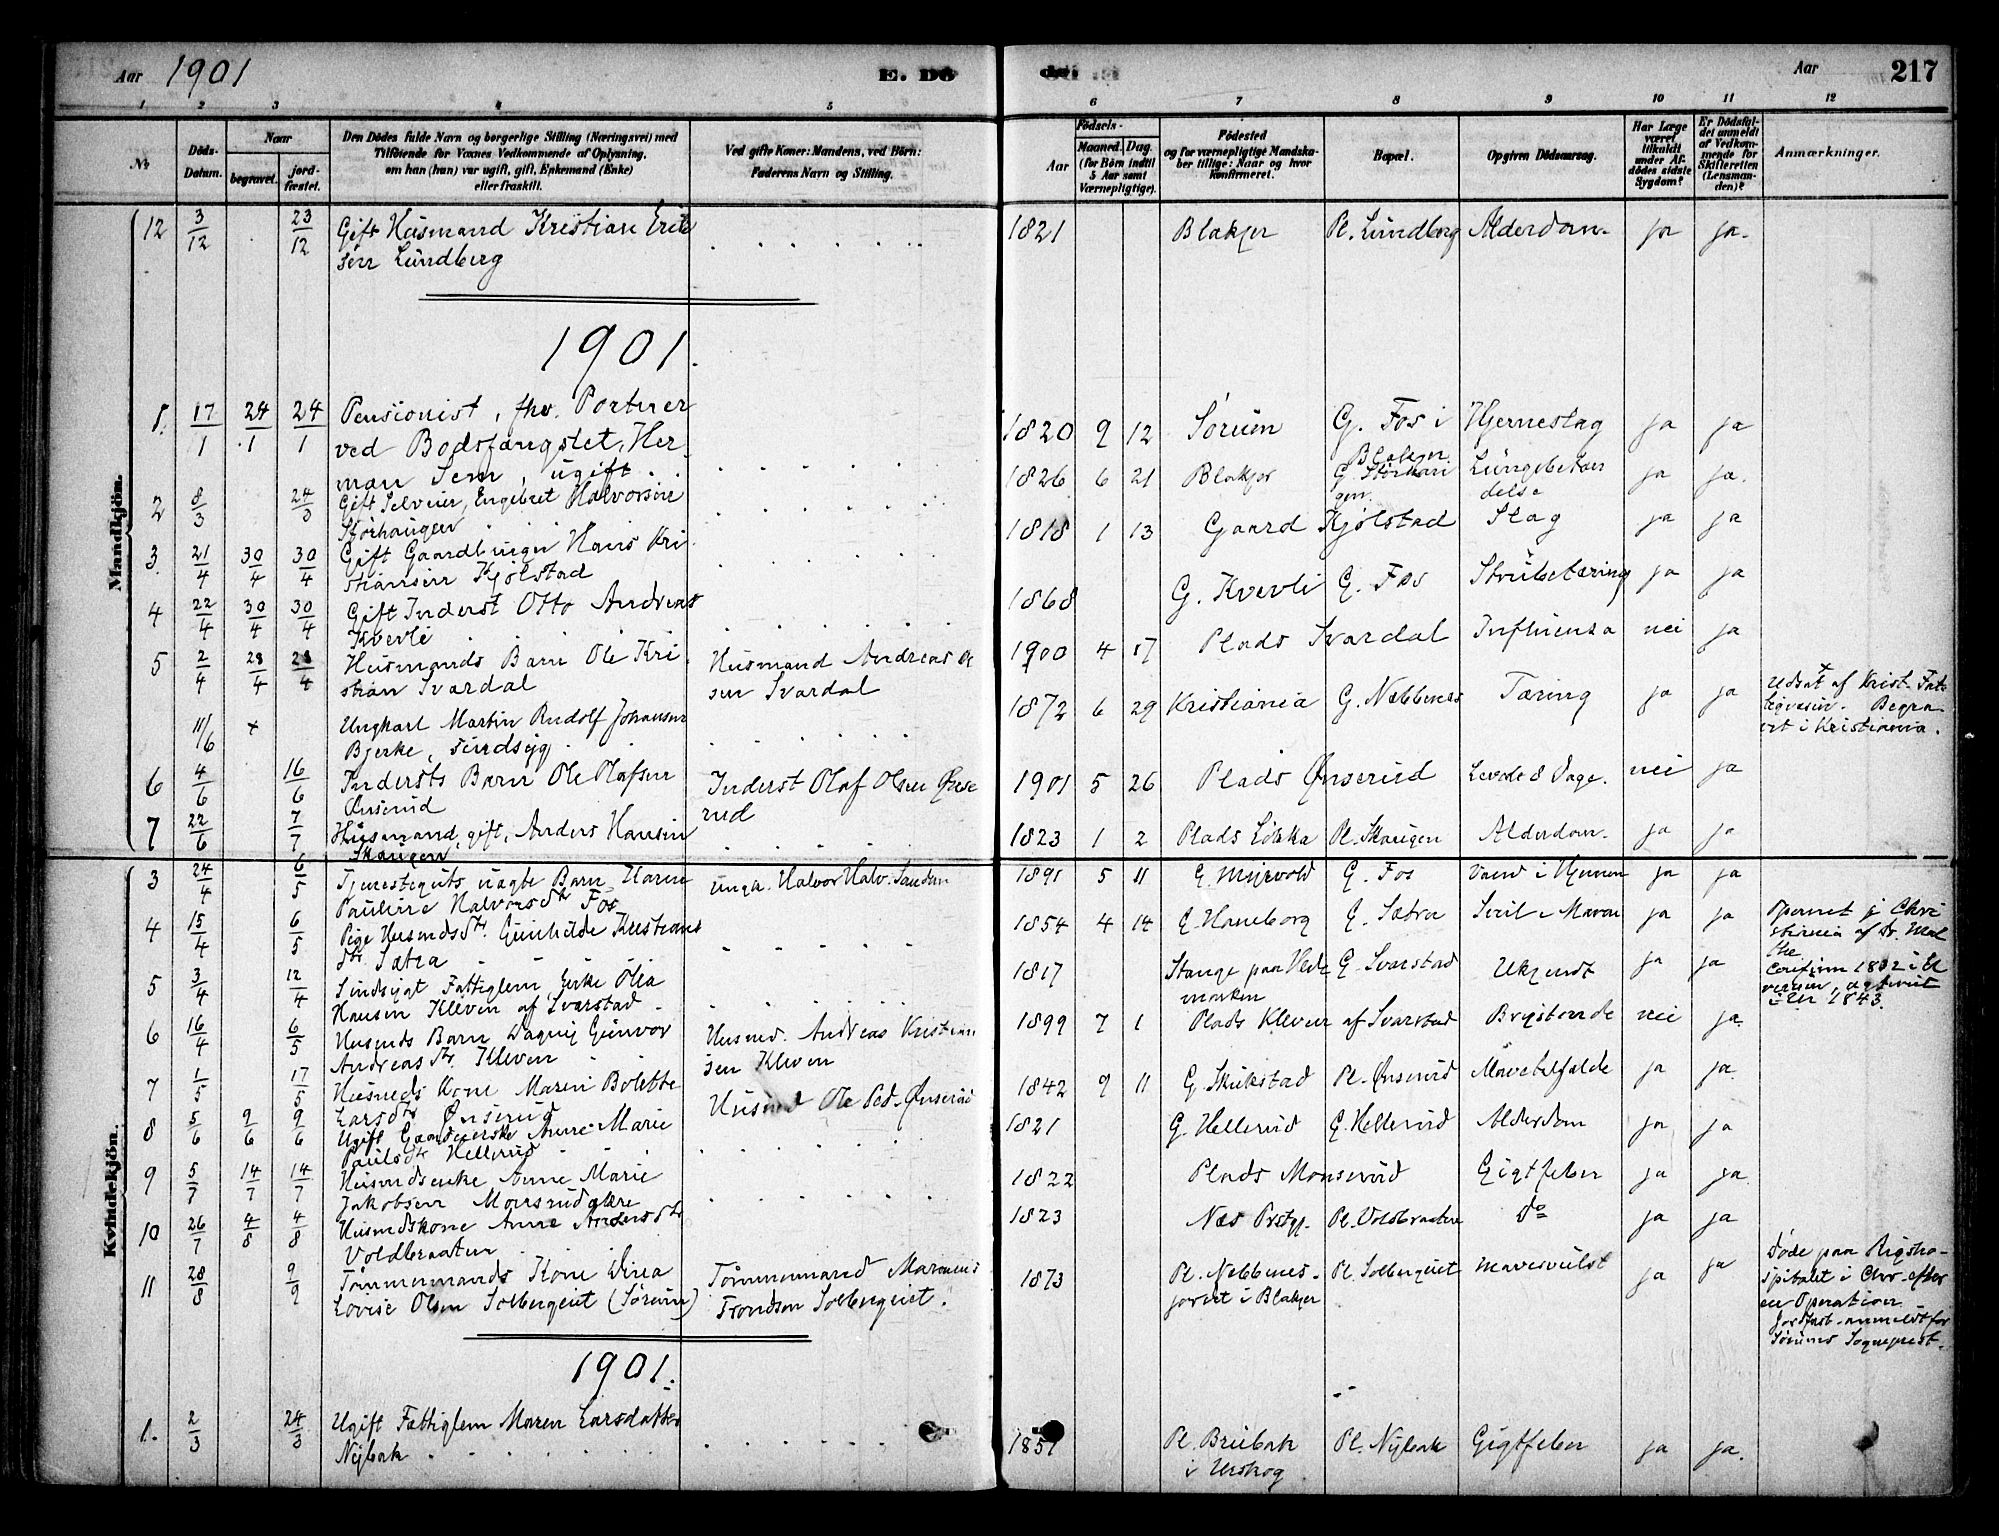 Aar 1901
E. Dö
de
Aar
217
1 2 3 4 5 6 7 8 9 10 11 12
No
Döds-Datum.
Naar
begravet.
jord-fæstet.
Den Dödes fulde Navn og borgerlige Stilling (Næringsvei) med
Tilföiende for Voxnes Vedkommende af Oplysning,
om han (hun) var ugift, gift, Enkemand (Enke)
eller fraskilt.
Ved gifte Koner: Mandens, ved Börn:
Faderens Navn og Stilling.
Födsels-
Aar
Maaned. Dag.
(for Börn indtil
5 Aar samt
Værnepligtige).
Födested
og for værnepligtige Mandska-
ber tillige: Naar og hvor
konfirmeret.
Bopæl.
Opgiven Dödsaarsag.
Har Læge
været
tilkaldt
under Af-
dödes sidste
Sygdom?
Er Dödsfal-
det anmeldt
af Vedkom-
mende for
Skifteretten
(Lensman-
den)?
Anmærkninger.
Mandkjön.
12 3/12 23/12 Gift Husmand Kristian Erik
sen Lundberg 1821 Blakjer Pl. Lundberg Alderdom ja ja.
1901.
1. 17/1 24/1 24/1 Pensionist, fhv. Portner
ved Bodsfængslet, Her
man Sem, ugift 1820 9 12 Sörum G. Fos i
Blakjer Hjerneslag ja ja
2 8/3 24/3 Gift Selveier, Engebret Halvorsen
Storhaugen 1826 6 21 Blakjer G. Storhau
gen Lungebetæn
delse ja ja.
3. 21/4 30/4 30/4 Gift Gaardbruger Hans Kri
stiansen Kjölstad 1818 1 13 Gaard Kjölstad Slag ja ja
4 22/4 30/4 30/4 Gift Inderst Otto Andreas
Kverli 1868 G. Kverli G. Fos Strubetæring ja ja
5 2/4 28/4 28/4 Husmands Barn Ole Kri
stian Svardal Husmand Andreas Ol
sen Svardal 1900 4 17 Plads Svardal Influensa nei ja
11/6 + Ungkarl Martin Rudolf Johansen
Bjerke, sindsyg 1872 6 29 Kristiania G. Nebbenes Tæring ja ja Udsat af Krist. Fat
tigvæsen. Begra-
vet i Kristiania.
6 4/6 16/6 Indersts Barn Ole Olafsen
Önserud Inderst Olaf Olsen Önse
rud 1901 5 26 Plads Önserud Levede 8 Dage. nei ja
7 22/6 7/7 Husmand, gift, Anders Hansen
Skaugen 1823 1 2 Plads Lökka Pl. Skaugen Alderdom ja ja
Kvindekjön.
3 24/4 6/5 Tjenesteguts uægte Barn Karen
Pauline Halvorsdtr Fos ungk. Halvor Halv. 1891 5 11 G. Mijrvold G. Fos Vand i Hjernen ja ja
4 15/4 6/5 Pige Husmdsdtr. Gunhilde Kristians
dtr Sætra 1854 4 14 G. Haneborg G. Sætra Svul i Maven ja ja Operert i Chri
stiania af Dr. Mal
the
5 3/4 12/4 Sindsygt Fattiglem, Enke Olia
Hansen Kleven af Svarstad 1817 Stange paa Hede
marken G. Svarstad Ukjendt ja ja Confirm 1832 i El
verum, 1843
6 16/4 6/5 Husmds Barn Dagny Gunvor
Andreasdtr Kleven Husmd. Andreas Kristian
sen Kleven 1899 7 1 Plads Kleven af Svarstad Brystonde nei ja.
7 1/5 17/5 Husmds Kone Maren Bolette
Larsdtr Önserud Husmd Ole Ped. Önserud 1842 9 11 G. Skukstad Pl. Önserud Mavetilfælde ja ja.
8 5/6 9/6 9/6 Ugift Gaardeierske Anne Marie
Paulsdtr Hellerud 1821 G. Hellerud G. Hellerud Alderdom ja ja
9 5/7 14/7 14/7 Husmdsenke Anne Marie
Jakobsen Monsrud 1822 Plads Monserud Gigtfeber ja ja.
10 26/7 4/8 4/8 Husmdskone Anne Andersdtr
Voldbraaten 1823 Næs Prstgj. Pl. Voldbraaten Do ja ja
11 28/8 9/9 Tömmermands Kone Dina
Lovise Olsen Solbergeiet (Sörum) Tömmermand Marenius
Trondsen Solbergeiet. 1873 Pl. Nebbenes-
jordet i Blakjer Pl. Solbergeiet Mavesvulst ja ja Döde paa Rigsho-
spitalet i Chr. efter
en Operation
Jordfæst. anmeldt for
Sörums Sogneprest.
1901.
1. 2/3 24/3 Ugift Fattiglem Maren Larsdatter
Nybak 1851 Pl. Brubak
i Urskog Pl. Nybak Gigtfeber ja ja.